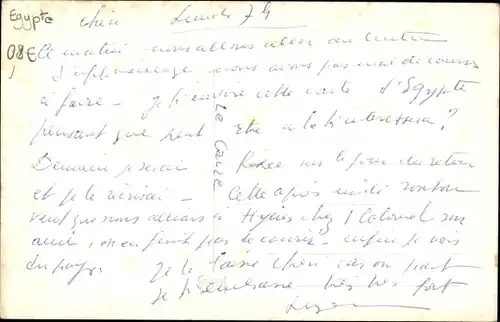 Egypte
08€
chéri Lundi 74
Ce matin nous allons aller au centre
d'
nous avons pas mal de courses
à faire - je t'envoie cette carte d'Egypte
pensant que peut être a t'intéressera?
Le Caire
Demain je serai sur le du retour
et je te - Cette après midi tonton
veut que nous allions à Hyères chez 1 Colonel son
ami, on en finit pas de courir - enfin je vois
du pays.
Je te laisse chéri car on part
je t'embrasse très très fort